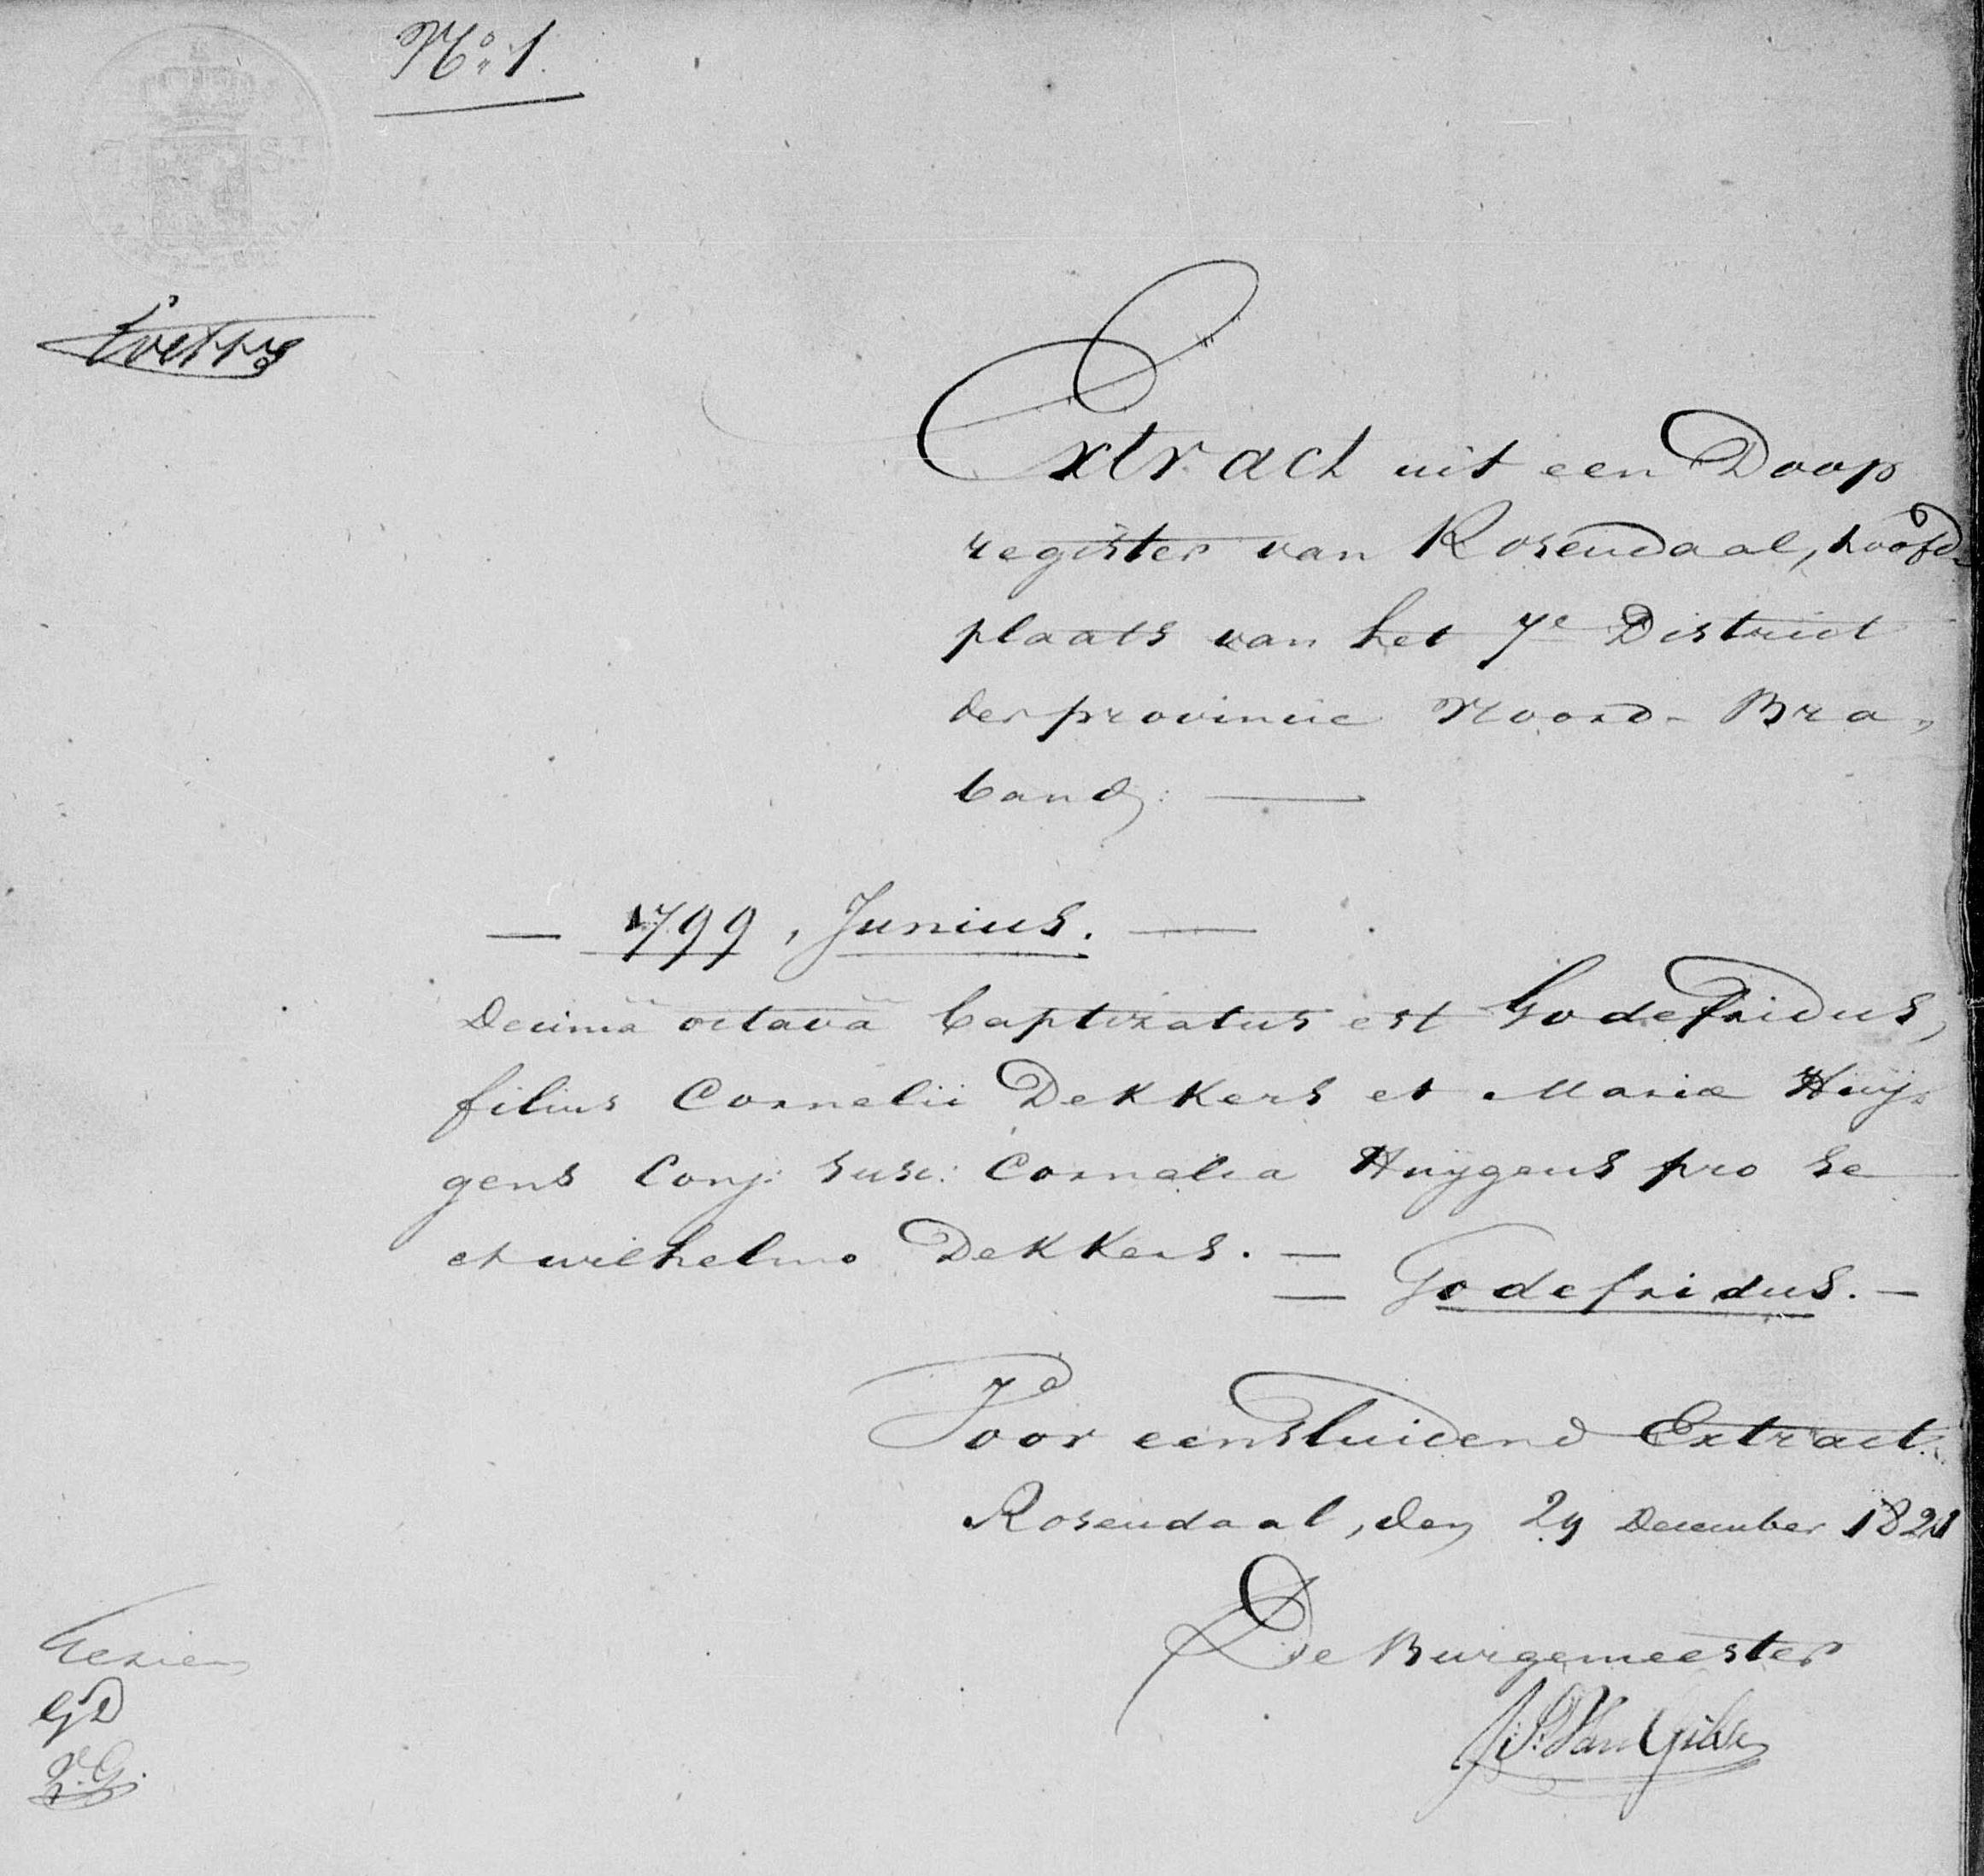 No. 1.
Extract uit een Doop
register van Rosendaal, hoofd-
plaats van het 7e District
der provincie Noord-Bra„
band;
— 1799, Junius. —
Decimâ octavâ baptizatus est Godefridus,
filius Cornelii Dekkers et Mariæ Huij„
gens Conj: Susc: Cornelia Huijgens pro se
et wilhelmo Dekkers. —
— Godefridus. —
Voor eensluidend Extract.
Rosendaal, den 29 December 1821
De Burgemeester
Van Gilse
Gezien
GD
V.G.